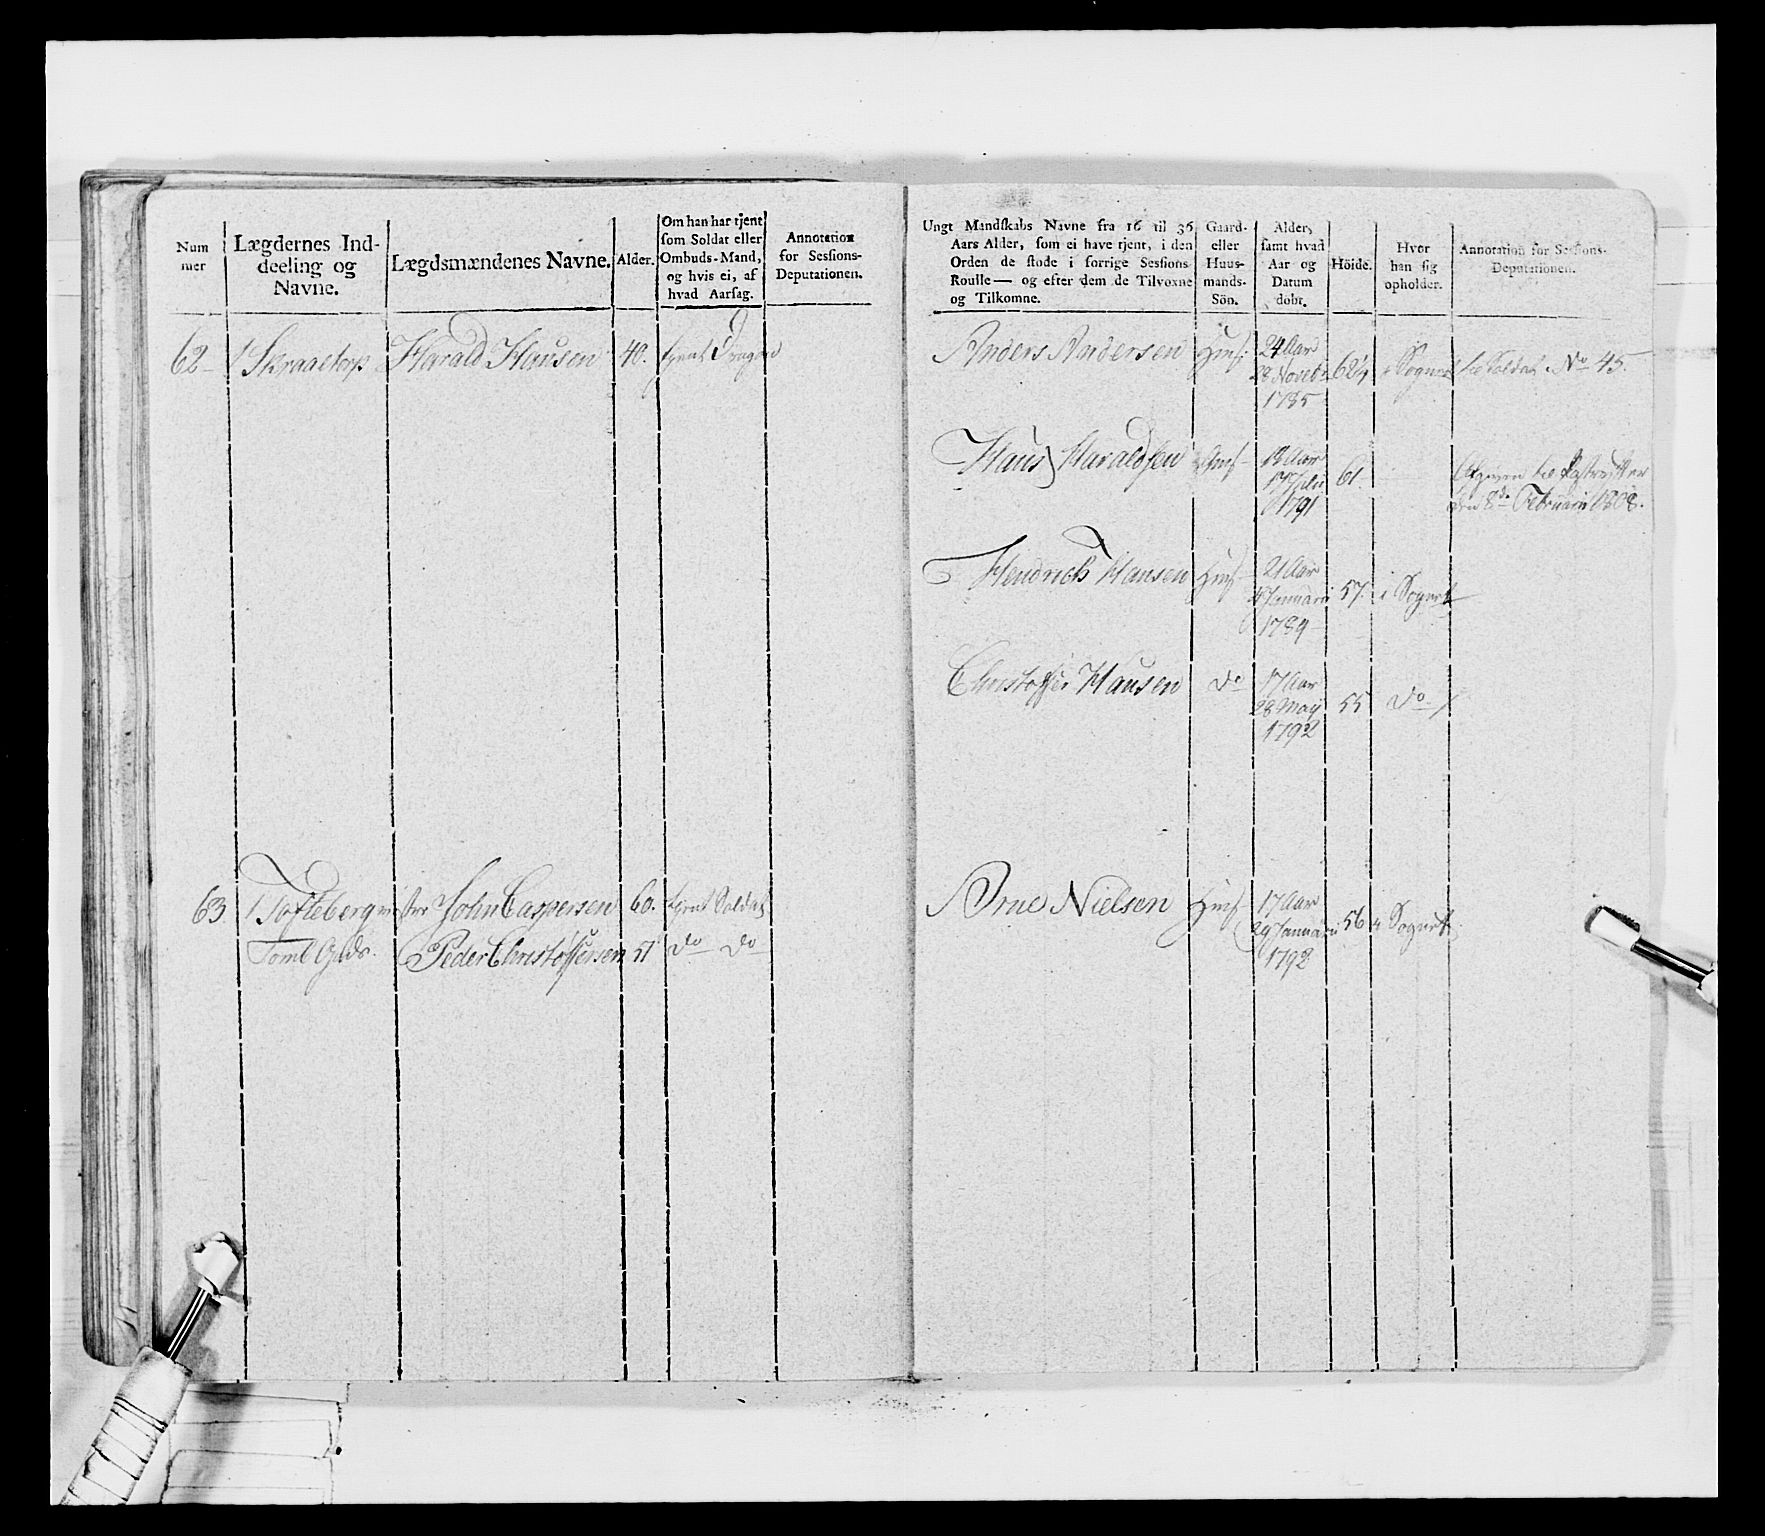 Num
mer
Lægdernes Ind-
deeling og
Navne.
Lægdsmændenes Navne.
Alder.
Om han har tjent
som Soldat eller
Ombuds-Mand,
og hvis ei, af
hvad Aarsag.
Annotation
for Sessions-
Deputationen.
62 1 Skraatorp Harald Hansen 40. tjent Dragon
63 1 Tofteberg John Caspersen 60. tjent Soldat
Peder Christoffersen 51 do do
Ungt Mandskabs Navne fra 16 til 36
Aars Alder, som ei have tjent, i den
Orden de stode i forrige Sessions-
Roulle — og efter dem de Tilvoxne
og Tilkomne.
Gaard-
eller
Huus-
mands-
Sön.
Alder,
samt hvad
Aar og
Datum
døbt.
Höide.
Hvor
han sig
opholder.
Annotation for Sessions-
Deputationen.
Anders Andersen Huus: 24 Aar
28 Novebr 62¼ i Sognet til Soldat No 45.
1785
Hans Haraldsen
61.
1791
Afgiven til
den 8de Februarii 1808.
Hendrich Hansen 21 Aar
Januarii 57. i Sognet
1789
Christoffer Hansen do 17 Aar
28 May 55 do
1792
Arne Nielsen 17 Aar
29 Januarii 56 i Sognet
1792